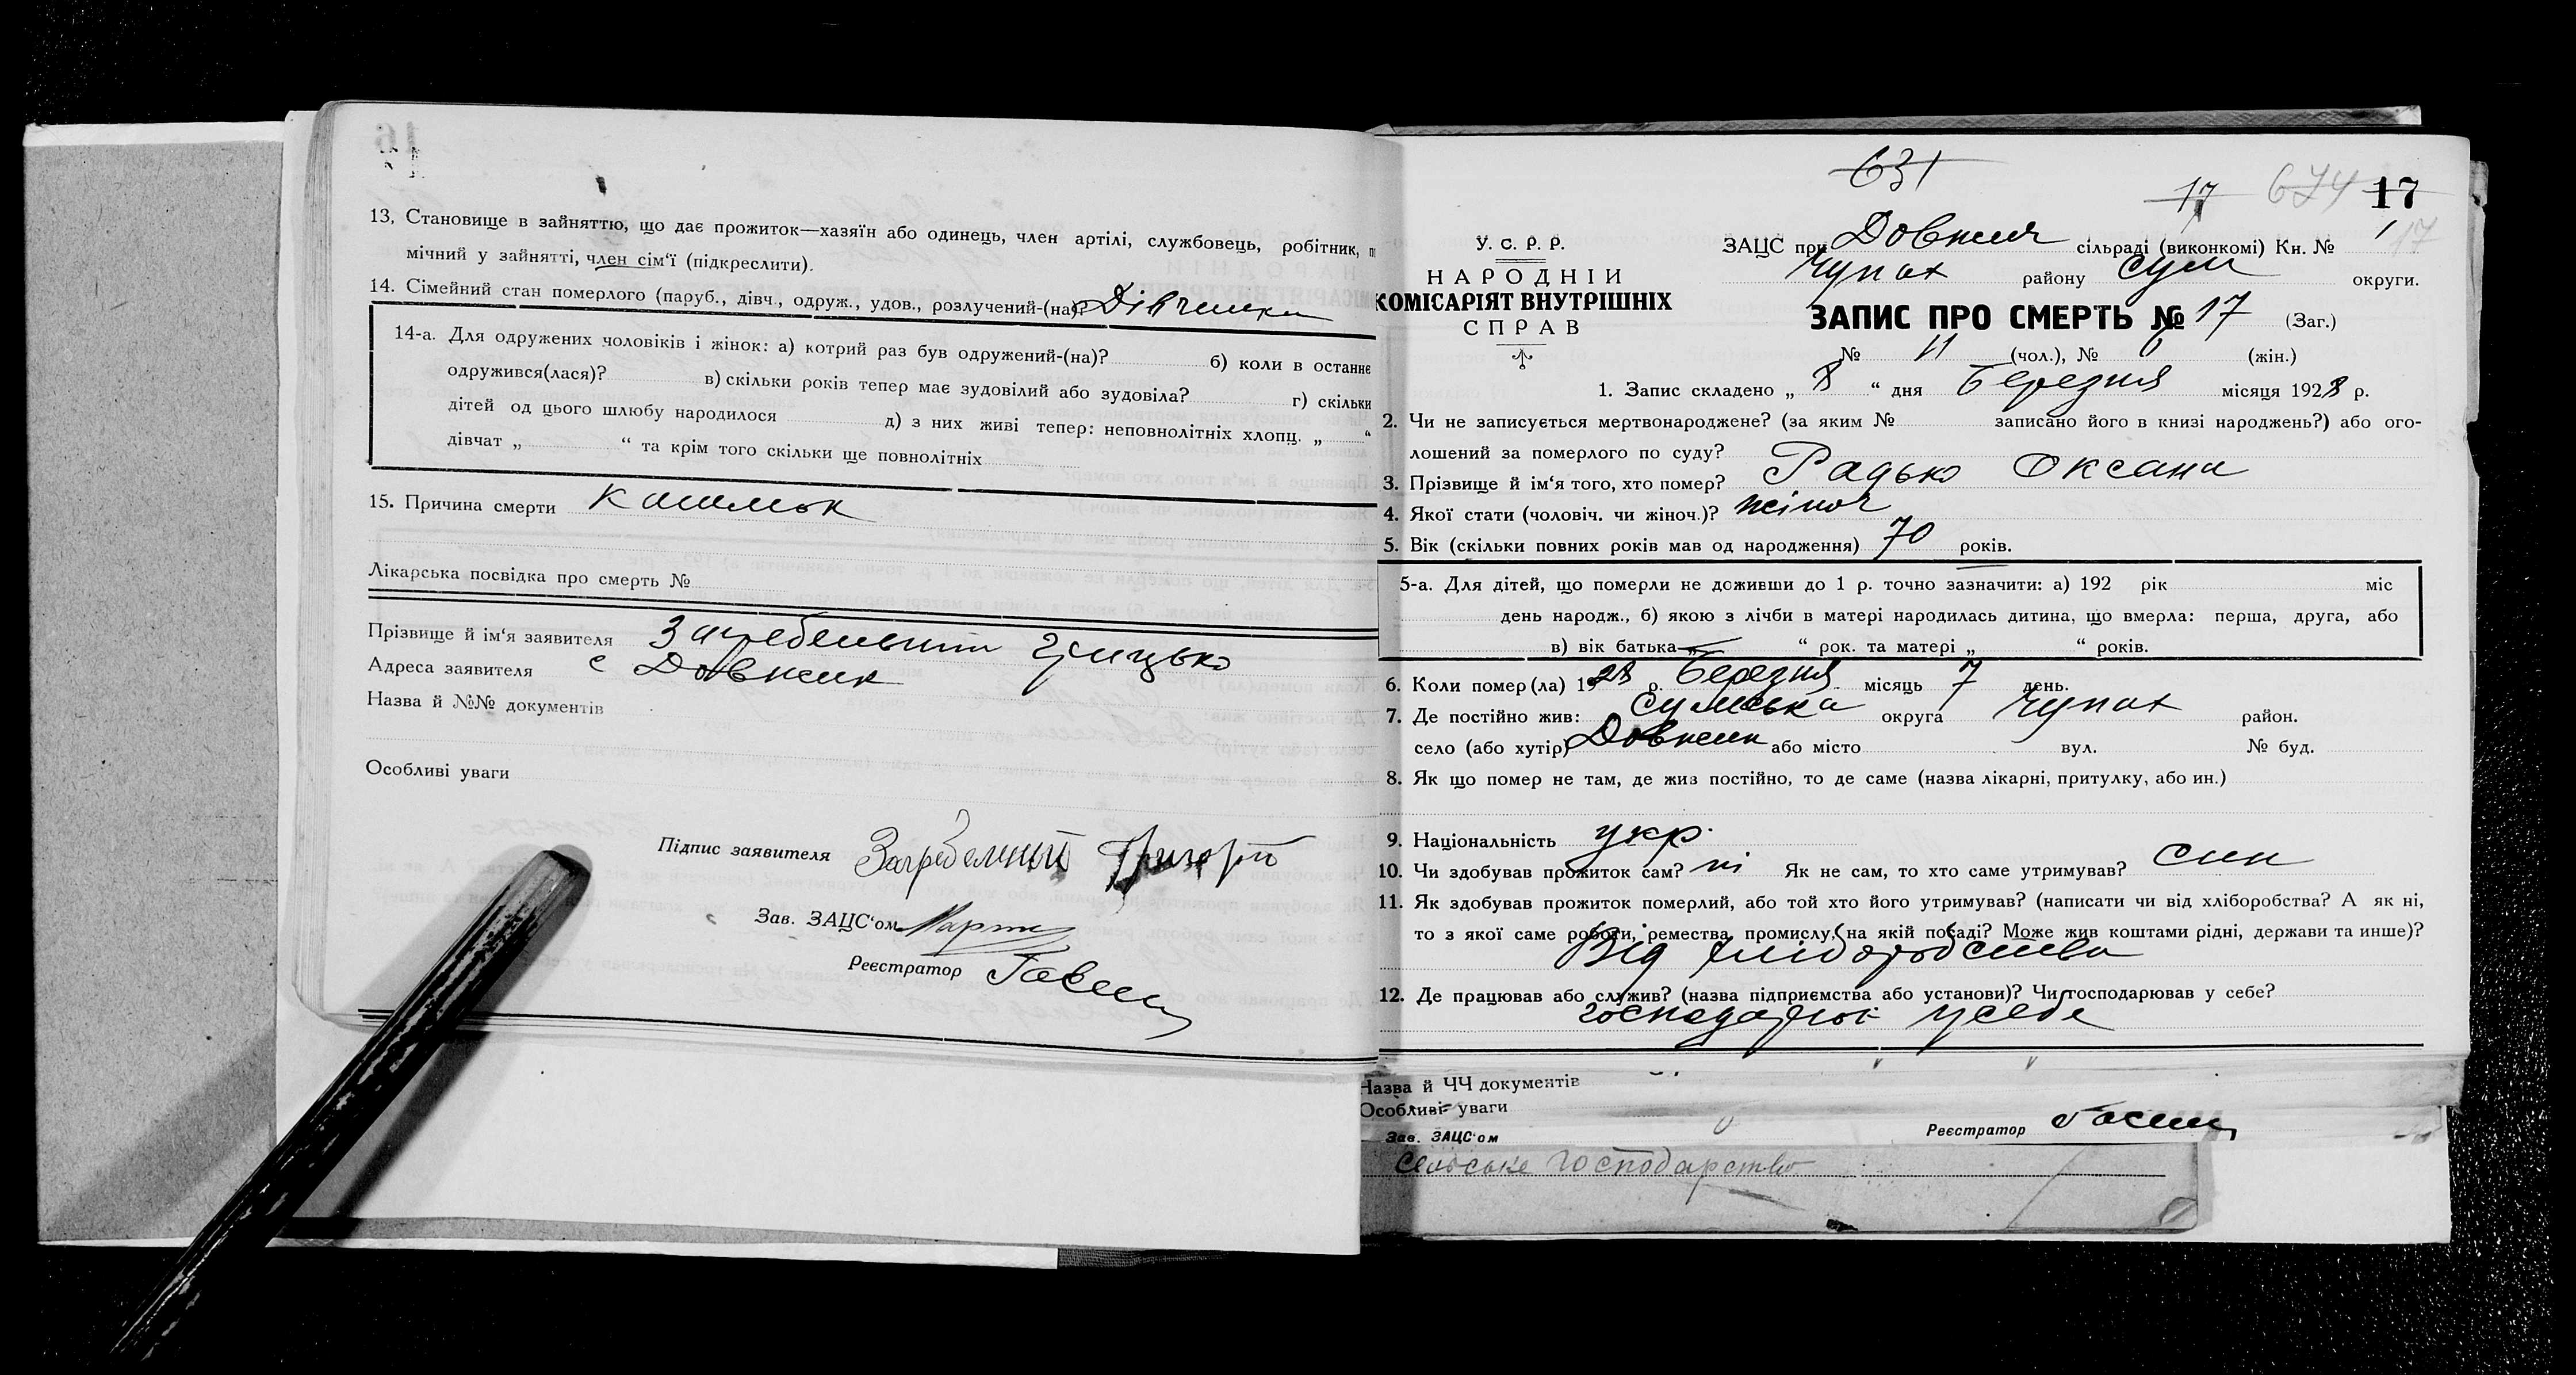 13. Становище в зайняттю, що дає прожиток—хазяїн або одинець, член артілі, службовець, робітник,
мічний у зайнятті, член сім'ї (підкреслити).
14. Сімейний стан померлого (паруб., дівч., одруж., удов., розлучений-(на)? Дівчинка
14-а. Для одружених чоловіків і жінок: а) котрий раз був одружений-(на)? б) коли в останнє
одружився(лася)? в) скільки років тепер має зудовілий або зудовіла? г) скільки
дітей од цього шлюбу народилося д) з них живі тепер: неповнолітніх хлопц. „ “
дівчат „ “ та крім того скільки ще повнолітніх
15. Причина смерти кашльок
Лікарська посвідка про смерть №
Прізвище й ім'я заявителя Грицько
Адреса заявителя с Довжик
Назва й №№ документів
Особливі уваги
Підпис заявителя Загребельний Григорій
Зав. ЗАЦС'ом
Реєстратор
631
17 674 17
17
У. С. Р. Р.
НАРОДНІЙ
КОМІСАРІЯТ ВНУТРІШНІХ
СПРАВ
ЗАЦС при Довжик сільраді (виконкомі) Кн. № 1
Чупах району Сум округи.
ЗАПИС ПРО СМЕРТЬ № 17 (Заг.)
№ 11 (чол.), № 6 (жін.)
1. Запис складено „ 8 “ дня Березня місяця 1928 р.
2. Чи не записується мертвонароджене? (за яким № записано його в книзі народжень?) або ого-
лошений за померлого по суду?
3. Прізвище й ім'я того, хто помер? Радько Оксана
4. Якої стати (чоловіч. чи жіноч.)? жіноч
5. Вік (скільки повних років мав од народження) 70 років.
5-а. Для дітей, що померли не доживши до 1 р. точно зазначити: а) 192 рік міс
день народж., б) якою з лічби в матері народилась дитина, що вмерла: перша, друга, або
в) вік батька „ “ рок. та матері „ “ років.
6. Коли помер(ла) 1928 р. Березня місяць 7 день.
7. Де постійно жив: Сумська округа Чупах район.
село (або хутір) Довжик або місто вул. № буд.
8. Як що помер не там, де жив постійно, то де саме (назва лікарні, притулку, або ин.)
9. Національність укр.
10. Чи здобував прожиток сам? ні Як не сам, то хто саме утримував? син
11. Як здобував прожиток померлий, або той хто його утримував? (написати чи від хліборобства? А як ні,
то з якої саме роботи, ремества, промислу, на якій посаді? Може жив коштами рідні, держави та инше)?
Від хліборобства
12. Де працював або служив? (назва підприємства або установи)? Чи господарював у себе?
господарює у себе
Назва й ЧЧ документів
Особливі уваги
Зав. ЗАЦС'ом Реєстратор
сельське господарство